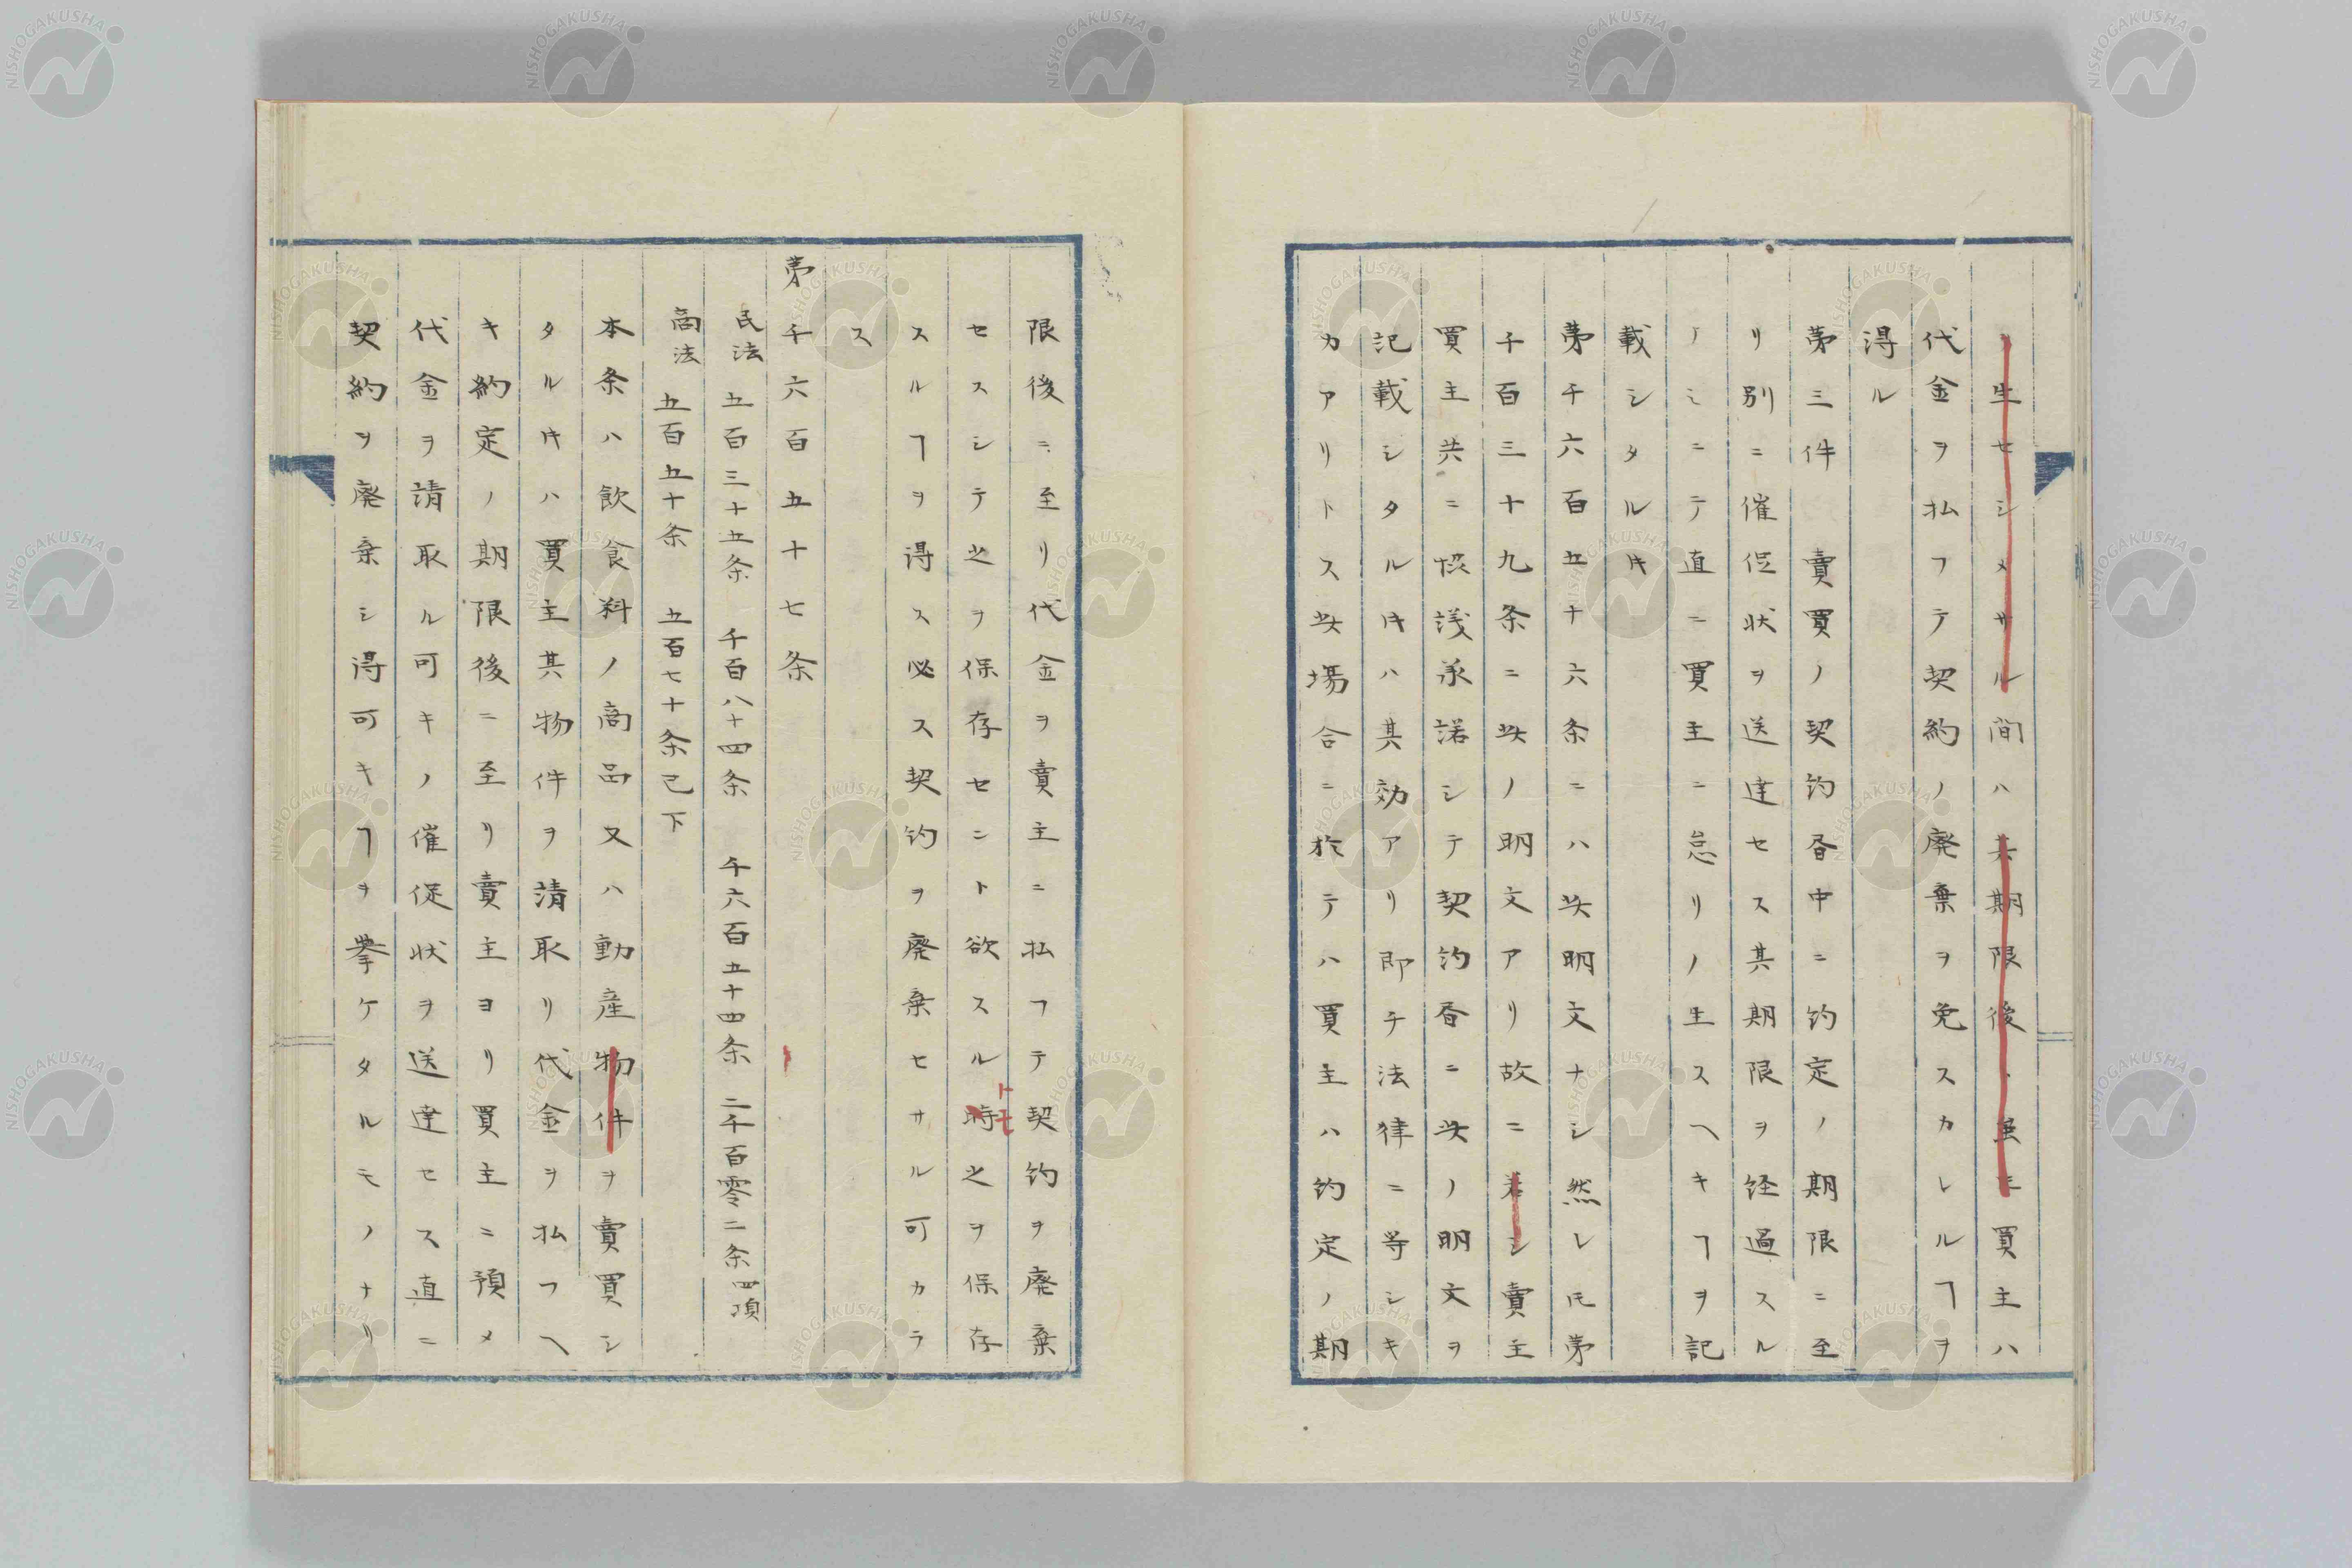 ヿ生セシメサル間ハ其期限後ト虽モ買主ハ
代金ヲ払フテ契約ノ廃棄ヲ免スカレルヿヲ
得ル
第三件　賣買ノ契約書中ニ約定ノ期限ニ至
リ別ニ催促状ヲ送達セス其期限ヲ経過スル
ノミニテ直ニ買主ニ怠リノ生スヘキヿヲ記
載シタル𪜈
第千六百五十六条ニハ此明文ナシ然レ𪜈第
千百三十九条ニ此ノ明文アリ故ニ若シ賣主
買主共ニ協議承諾シテ契約書ニ此ノ明文ヲ
記載シタル𪜈ハ其効アリ即チ法律ニ等シキ
カアリトス此場合ニ於テハ買主ハ約定ノ期
限後ニ至リ代金ヲ賣主ニ払フテ契約ヲ廃棄
セスシテ之ヲ保存セニト欲スル時トモ之ヲ保存
スルヿヲ得ス必ス契約ヲ廃棄セサル可カラ
ス
第千六百五十七条
民法　五百三十五条　千百八十四条　千六百五十四条　二千百零二条四項
商法　五百五十条　五百七十条已下
本条ハ飲食料ノ商品又ハ動産物件ヲ賣買シ
タル𪜈ハ買主其物件ヲ請取リ代金ヲ払フヘ
キ約定ノ期限後ニ至リ賣主ヨリ買主ニ預メ
代金ヲ請取ル可キノ催促状ヲ送達セス直ニ
契約ヲ廃棄シ得可キヿヲ挙ケタルモノナリ
NISHOGAKUSHA